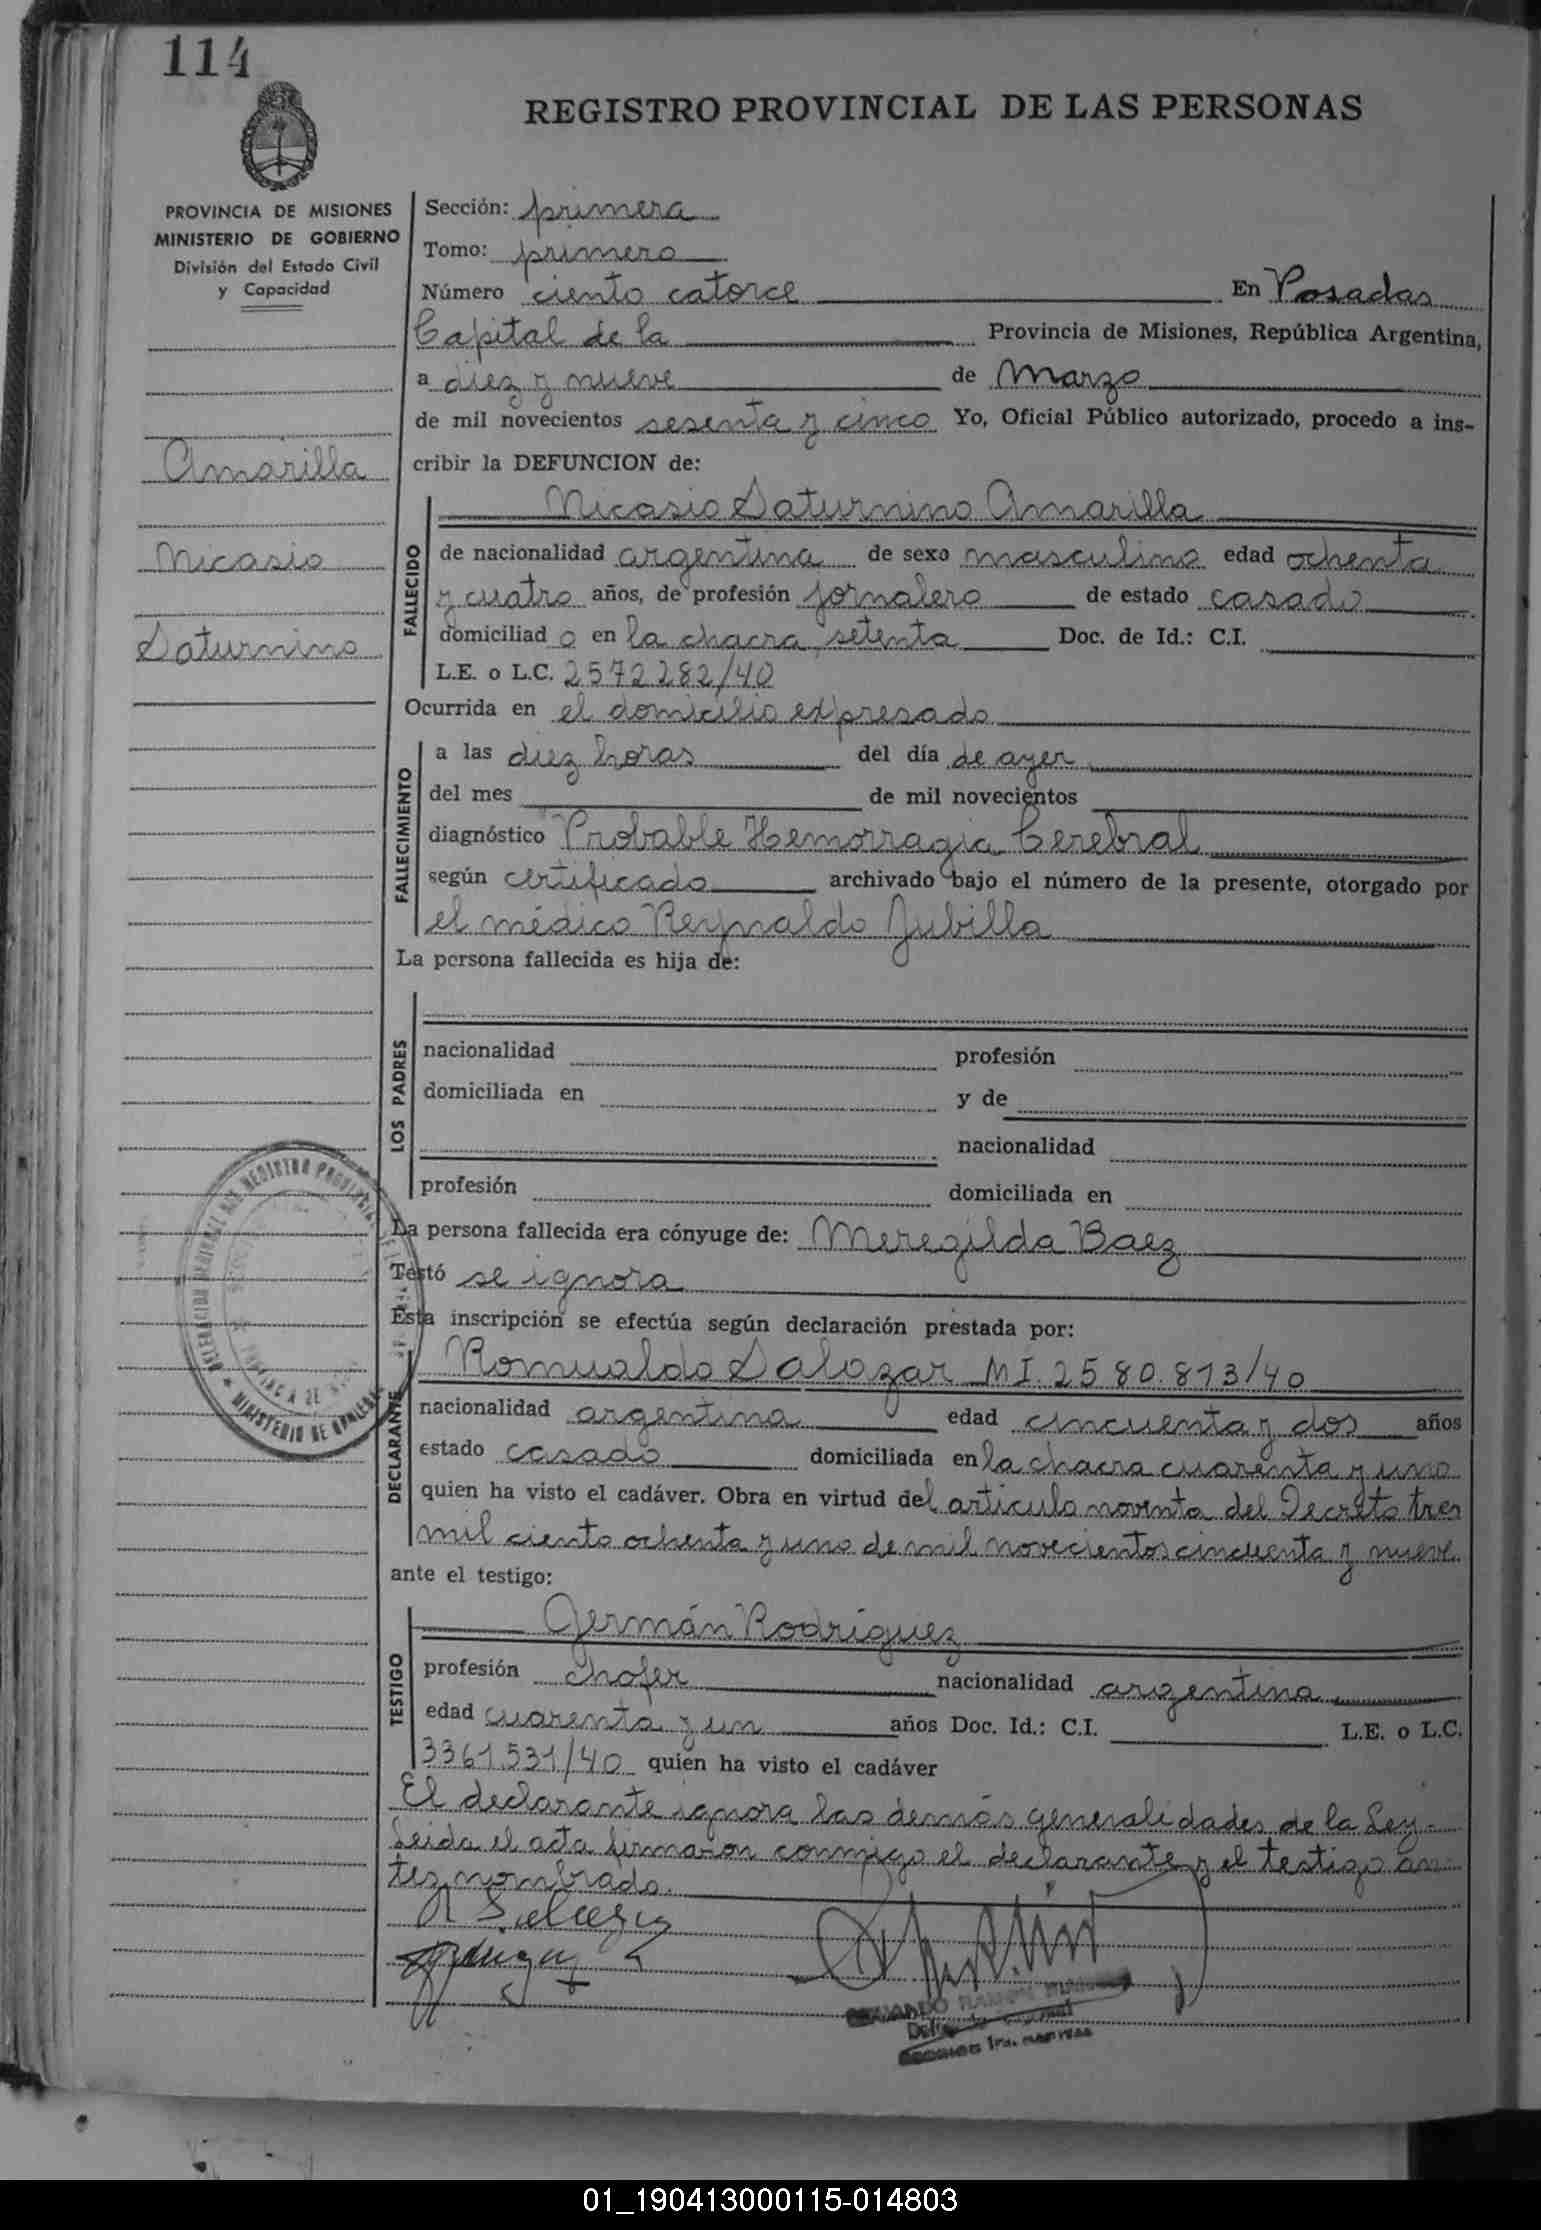 114
REGISTRO PROVINCIAL DE LAS PERSONAS
PROVINCIA DE MISIONES
MINISTERIO DE GOBIERNO
División del Estado Civil
y Capacidad
Amarilla
Nicasio
Saturnino
Sección: primera
Tomo: primero
Número ciento catorce En Posadas
Capital de la Provincia de Misiones, República Argentina,
a diez y nueve de Marzo
de mil novecientos sesenta y cinco Yo, Oficial Público autorizado, procedo a ins-
cribir la DEFUNCION de:
FALLECIDO
Nicasio Saturnino Amarilla
de nacionalidad argentina de sexo masculino edad ochenta
y cuatro años, de profesión jornalero de estado casado
domiciliad o en la chacra setenta Doc. de Id.: C.I.
L.E. o L.C. 2572282/40
Ocurrida en el domicilio expresado
FALLECIMIENTO
a las diez horas del día de ayer
del mes de mil novecientos
diagnóstico Probable Hemorragia Cerebral
según certificado archivado bajo el número de la presente, otorgado por
el médico Reynaldo Jubilla
La persona fallecida es hija de:
LOS PADRES
nacionalidad profesión
domiciliada en y de
nacionalidad
profesión domiciliada en
La persona fallecida era cónyuge de: Meregilda Baez
Testó se ignora
Esta inscripción se efectúa según declaración prestada por:
DECLARANTE
Romualdo Salazar MI. 2580.813/40
nacionalidad argentina edad cincuenta y dos años
estado casado domiciliada en la chacra cuarenta y uno
quien ha visto el cadáver. Obra en virtud del artículo noventa del Decreto tres
mil ciento ochenta y uno de mil novecientos cincuenta y nueve
ante el testigo:
TESTIGO
Germán Rodríguez
profesión chofer nacionalidad argentina
edad cuarenta y un años Doc. Id.: C.I. L.E. o L.C.
3361.531/40 quien ha visto el cadáver
El declarante ignora las demás generalidades de la Ley.
Leida el acta firmaron conmigo el declarante y el testigo an-
tes nombrado.
R Salazar
MINISTERIO DE GOBIERNO
01_190413000115-014803